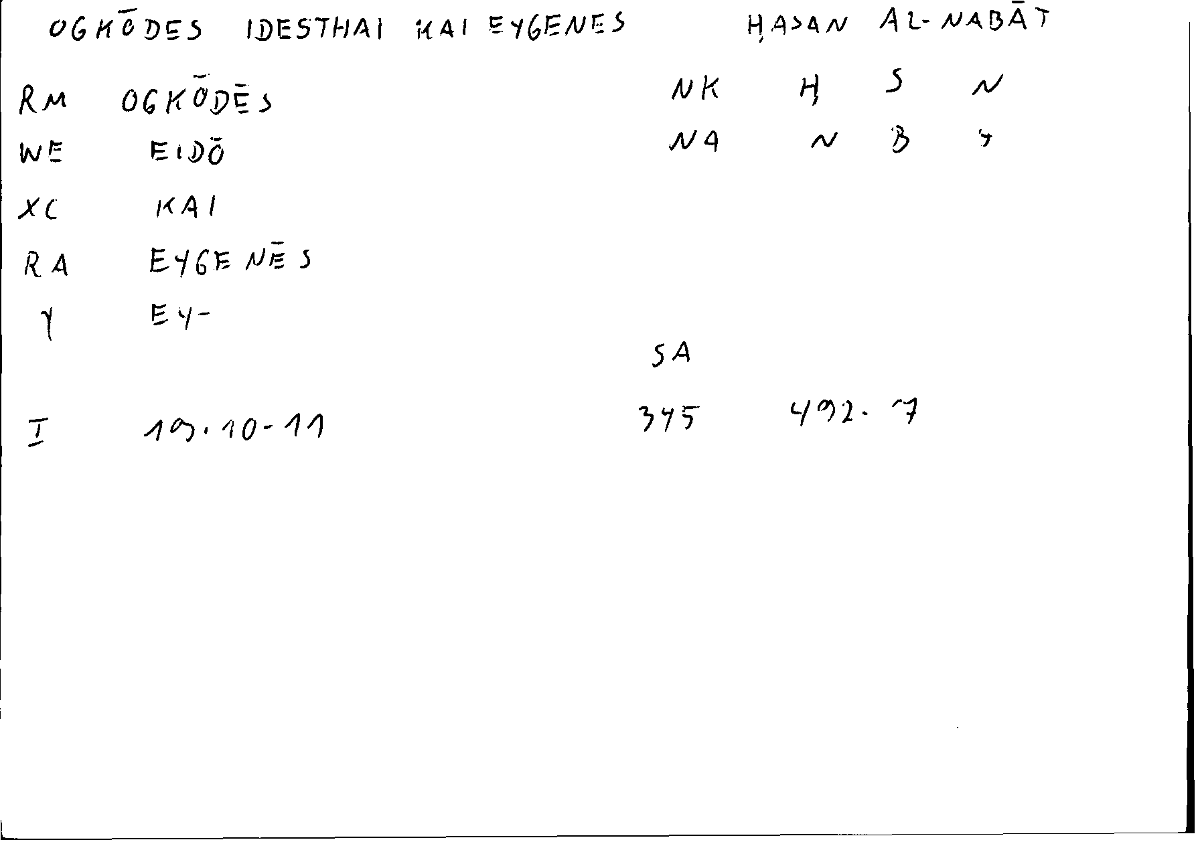 OGKŌDES IDESTHAI KAI EYGENES ḤASAN AL-NABĀT
RM OGKŌDĒS NK Ḥ S N
WE EIDŌ NA N B T
XC KAI
RA EYGENĒS
Y EY-
SA
I 19.10-11 345 492.7